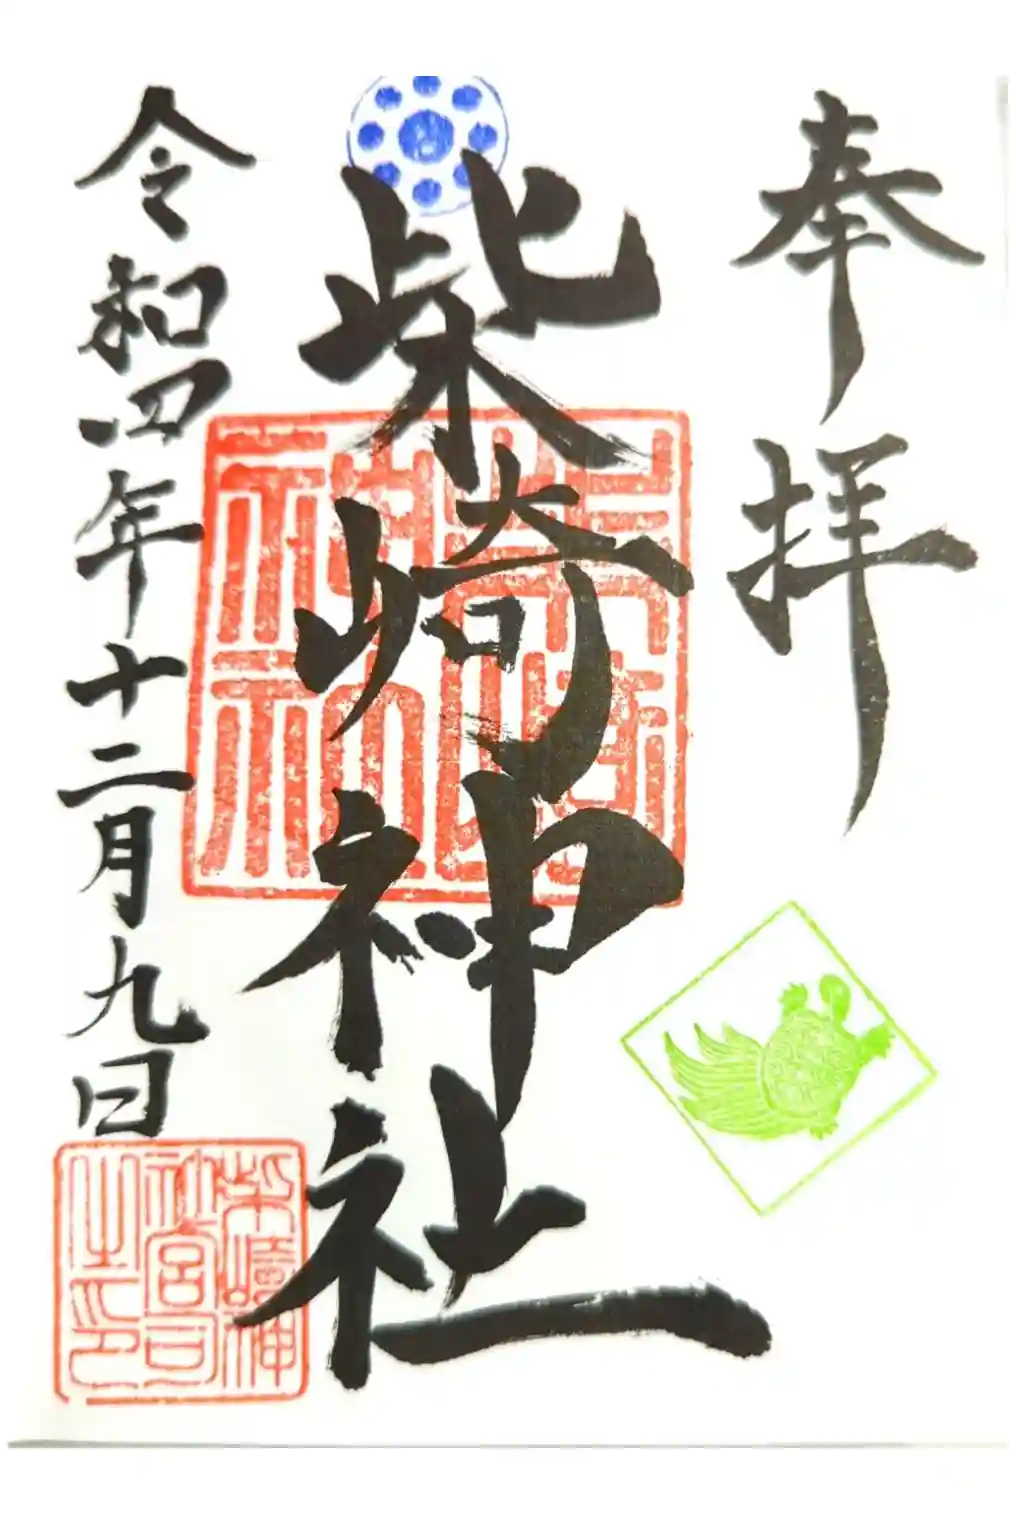 奉拝
柴崎神社
柴崎神社
令和四年十二月九日
柴崎神
社宮司
之印